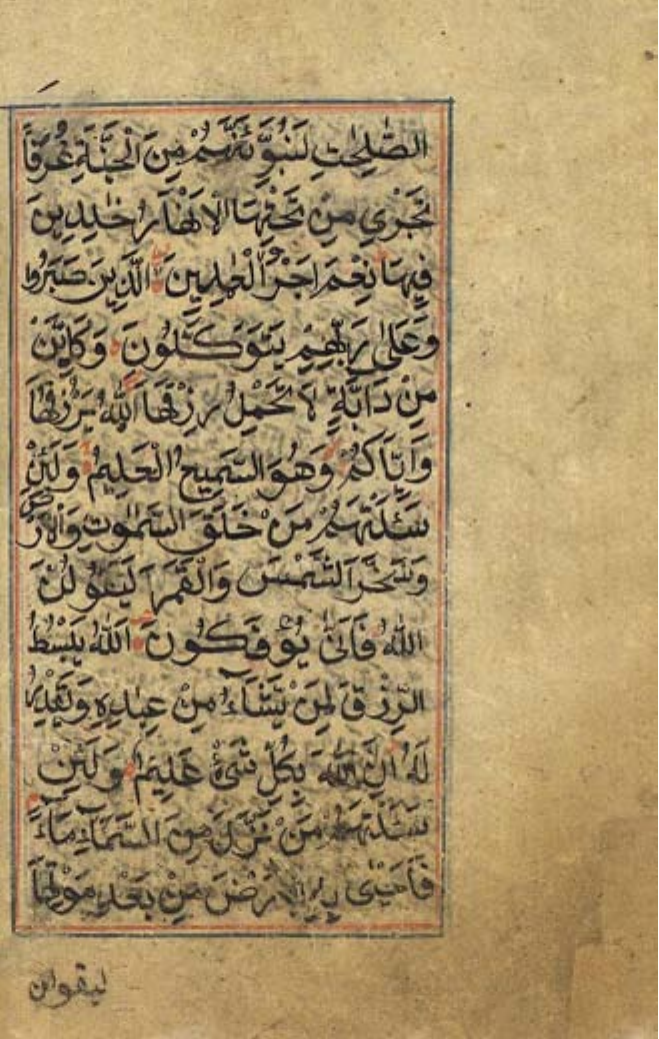 الصّٰلِحٰتِ لَنُبَوِّئَنَّهُمْ مِنَ الْجَنَّةِ غُرَفًا
تَجْرِي مِنْ تَحْتِهَا الْاَنْهَارُ خٰلِدِينَ
فِيهَا نِعْمَ اَجْرُ الْعٰمِلِينَ الَّذِينَ صَبَرُوا
وَعَلٰى رَبِّهِمْ يَتَوَكَّلُونَ وَكَاَيِّنْ
مِنْ دَابَّةٍ لَا تَحْمِلُ رِزْقَهَا اَللّٰهُ يَرْزُقُهَا
وَاِيَّاكُمْ وَهُوَ السَّمِيعُ الْعَلِيمُ وَلَئِنْ
سَئَلْتَهُمْ مَنْ خَلَقَ السَّمٰوٰتِ وَالْاَرْضَ
وَسَخَّرَ الشَّمْسَ وَالْقَمَرَ لَيَقُولُنَّ
اللّٰهُ فَاَنّٰى يُؤْفَكُونَ اَللّٰهُ يَبْسُطُ
الرِّزْقَ لِمَنْ يَشَاءُ مِنْ عِبَادِهِ وَيَقْدِرُ
لَهُ اِنَّ اللّٰهَ بِكُلِّ شَيْءٍ عَلِيمٌ وَلَئِنْ
سَئَلْتَهُمْ مَنْ نَزَّلَ مِنَ السَّمَاءِ مَاءً
فَاَحْيٰى بِهِ الْاَرْضَ مِنْ بَعْدِ مَوْتِهَا
ليقولن